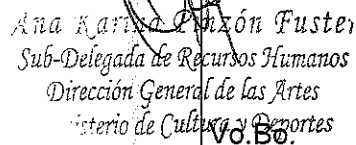 Ana Karina Pinzón Fuster
Sub-Delegada de Recursos Humanos
Dirección General de las Artes
isterio de Cultura y Deportes
Vo.Bo.